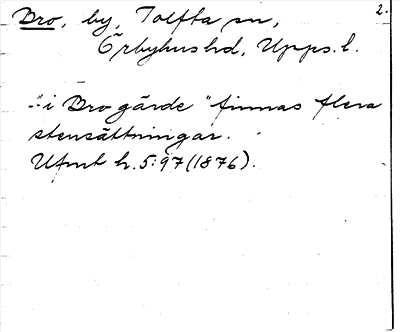 2.
Bro, by, Tolfta sn,
Örbyhus hd, Upps. l.
"i Brogärde" finnas flera
stensättningar.
Ufmt h. 5:97 (1876).